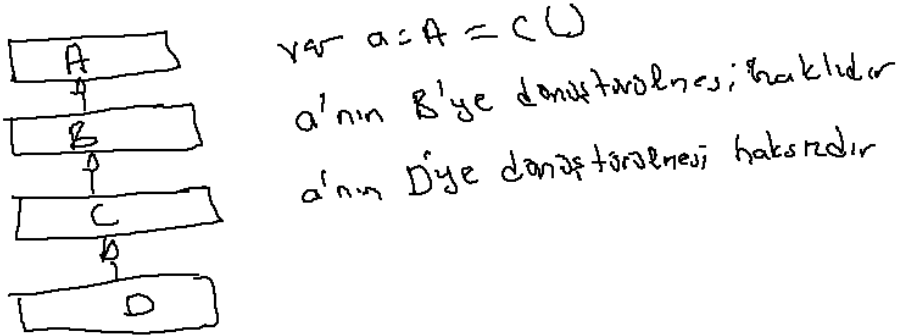 A
B
C
D
var a: A = C()
a'nın B'ye dönüştürülmesi; haklıdır
a'nın D'ye dönüştürülmesi haksızdır